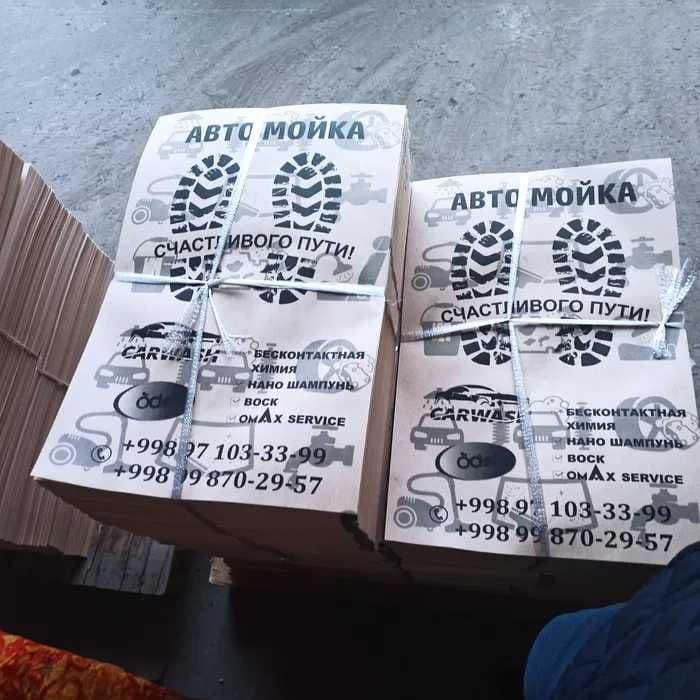 АВТО МОЙКА
СЧАСТЛИВОГО ПУТИ!
CARWASH
БЕСКОНТАКТНАЯ
ХИМИЯ
НАНО ШАМПУНЬ
ВОСК
OMAX SERVICE
+998 97 103-33-99
+998 99 870-29-57
АВТО МОЙКА
СЧАСТЛИВОГО ПУТИ!
CARWASH
БЕСКОНТАКТНАЯ
ХИМИЯ
НАНО ШАМПУНЬ
ВОСК
OMAX SERVICE
+998 97 103-33-99
+998 99 870-29-57